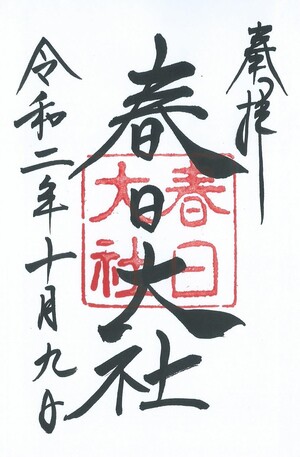 奉拝
春日大社
春日
大社
令和二年十月九日